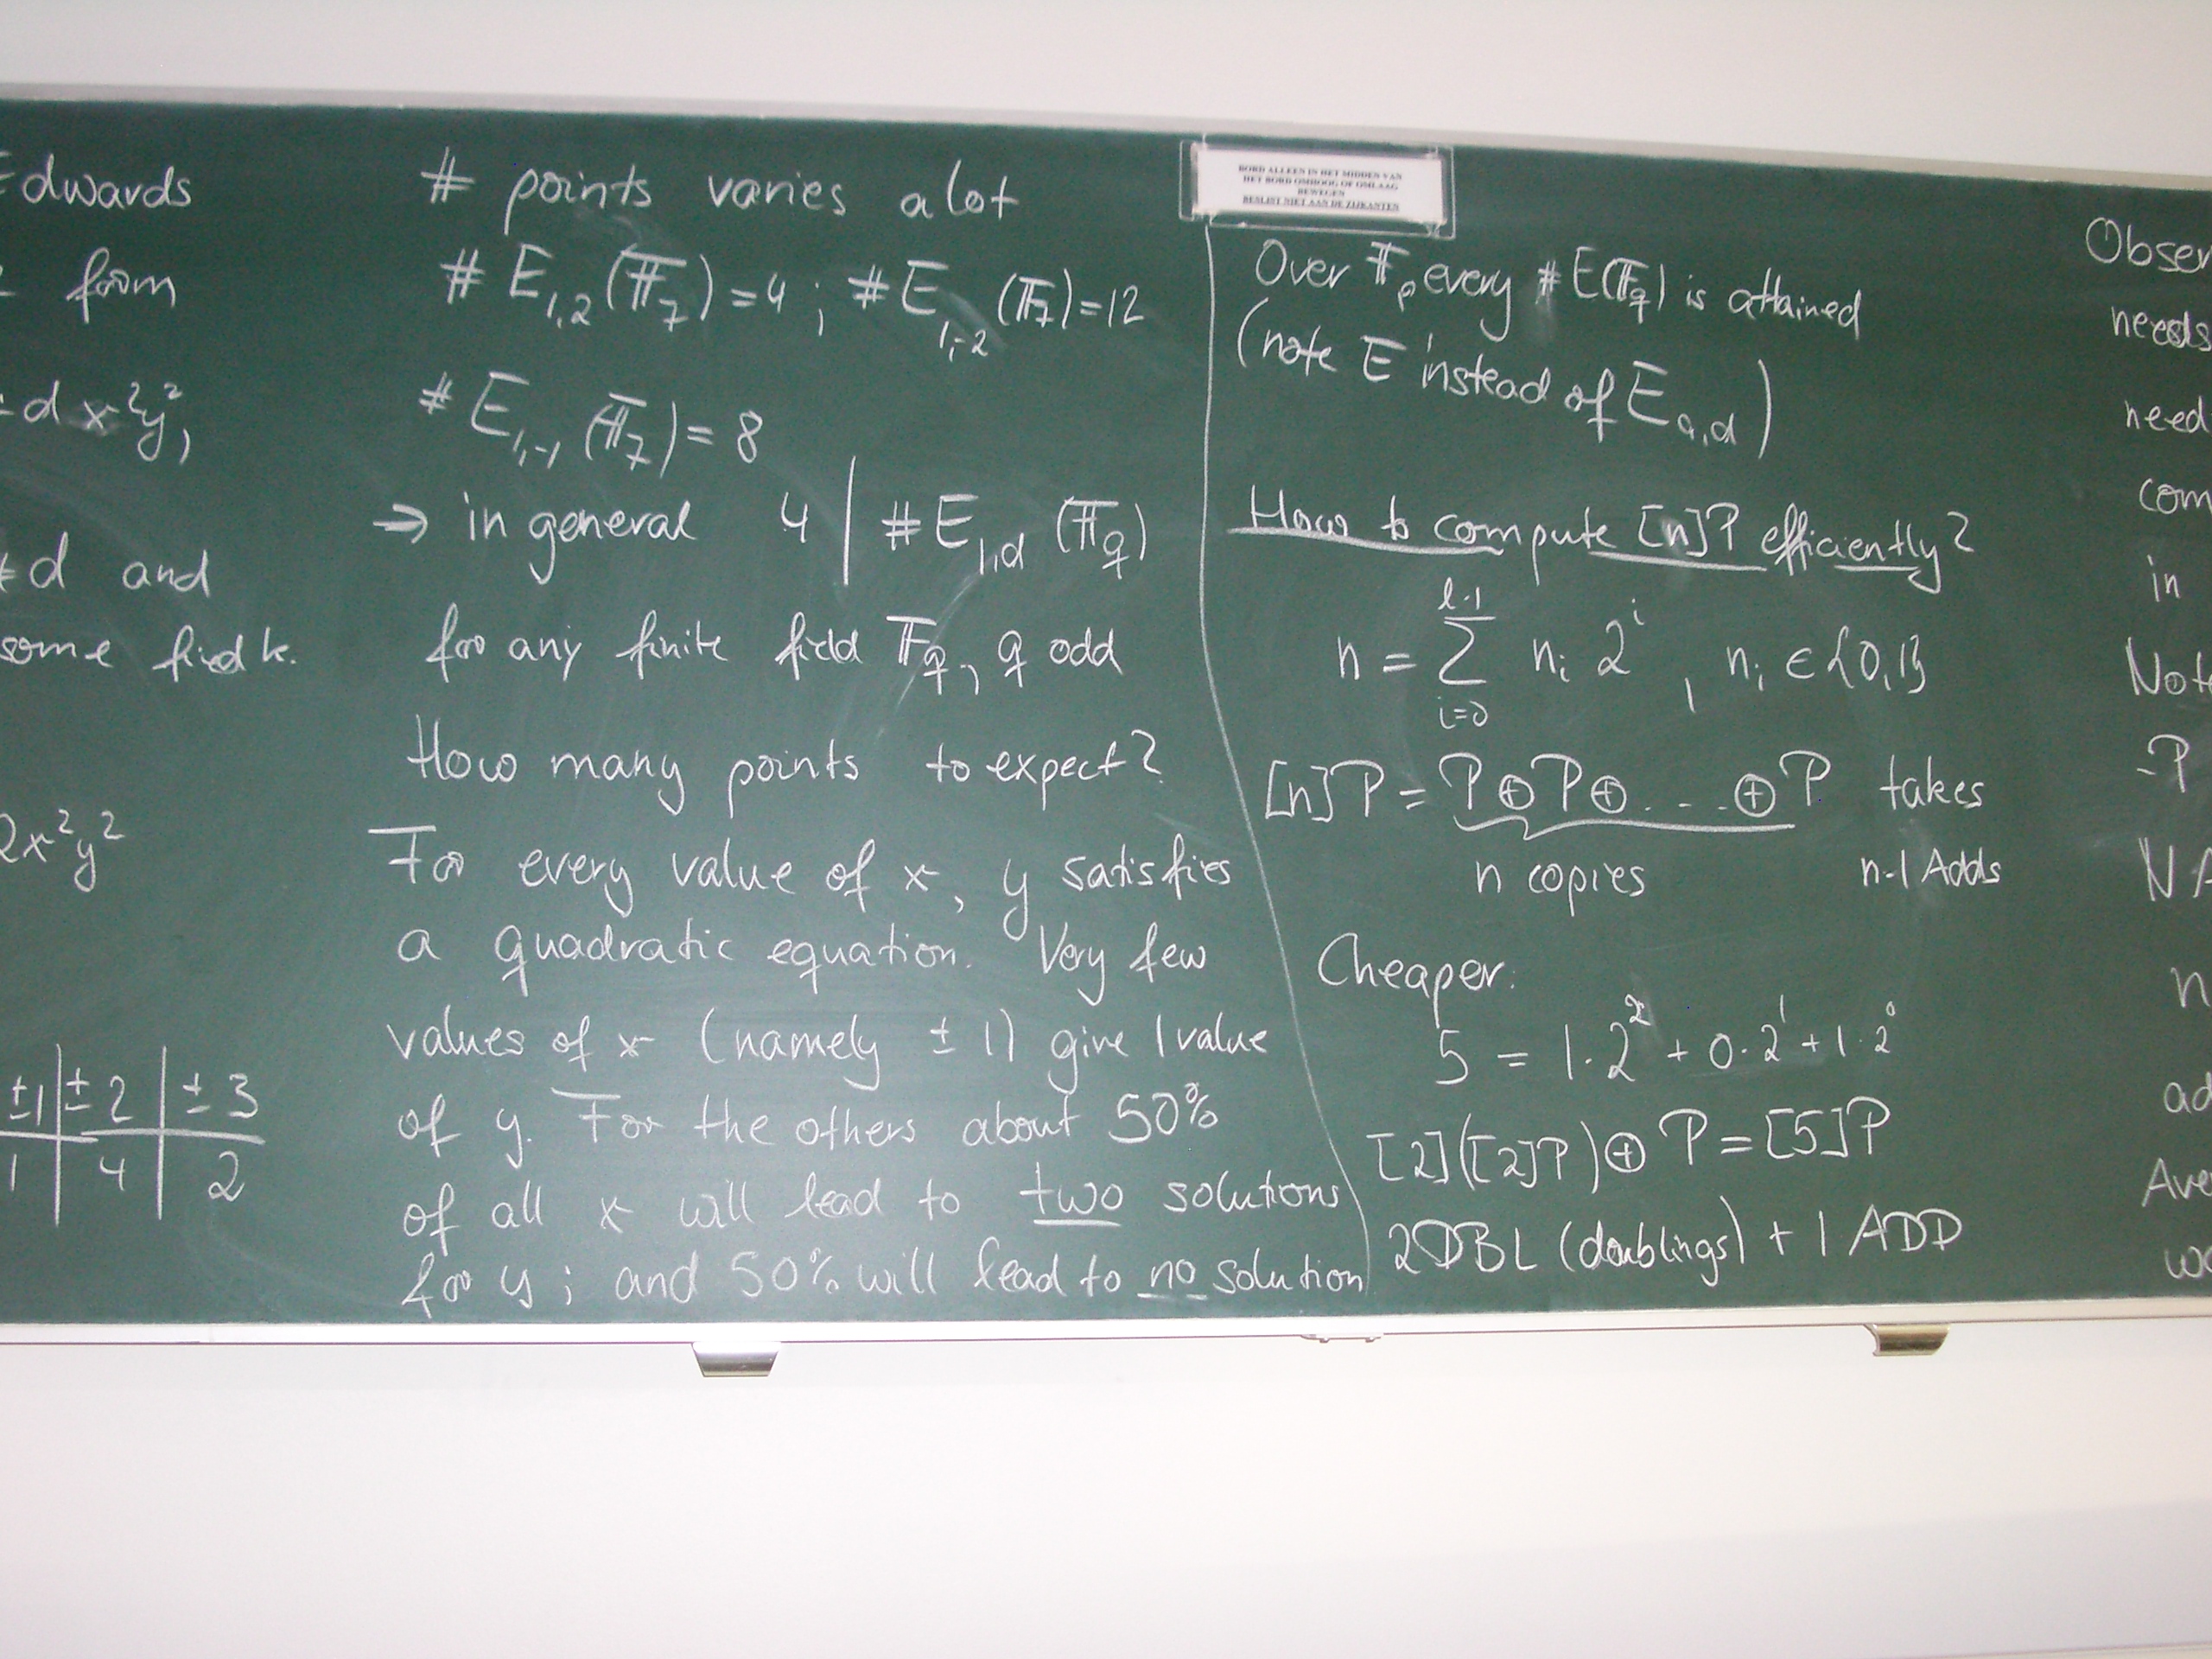 Edwards
form
= dx²y²,
≠ d and
some field k.
2x²y²
±1 | ±2 | ±3
1 | 4 | 2
# points varies a lot
# E_{1,2}(𝔽_7) = 4 ; # E_{1,-2}(𝔽_7) = 12
# E_{1,-1}(𝔽_7) = 8
→ in general 4 | # E_{1,d}(𝔽_q)
for any finite field 𝔽_q, q odd
How many points to expect?
For every value of x, y satisfies
a quadratic equation. Very few
values of x (namely ± 1) give 1 value
of y. For the others about 50%
of all x will lead to two solutions
for y ; and 50% will lead to no solution
BORD ALLEEN IN HET MIDDEN VAN
HET BORD OMHOOG OF OMLAAG
BEWEGEN
BESLIST NIET AAN DE ZIJKANTEN
Over 𝔽_p every # E(𝔽_q) is attained
(note E instead of E_{a,d})
How to compute [n]P efficiently?
n = ∑_{i=0}^{l-1} n_i 2^i , n_i ∈ {0,1}
[n]P = P ⊕ P ⊕ . - - . ⊕ P takes
n copies n-1 Adds
Cheaper:
5 = 1·2² + 0·2¹ + 1·2⁰
[2]([2]P) ⊕ P = [5]P
2DBL (doublings) + 1 ADD
Obser
needs
need
com
in
Note
-P
NA
n
ad
Ave
wo